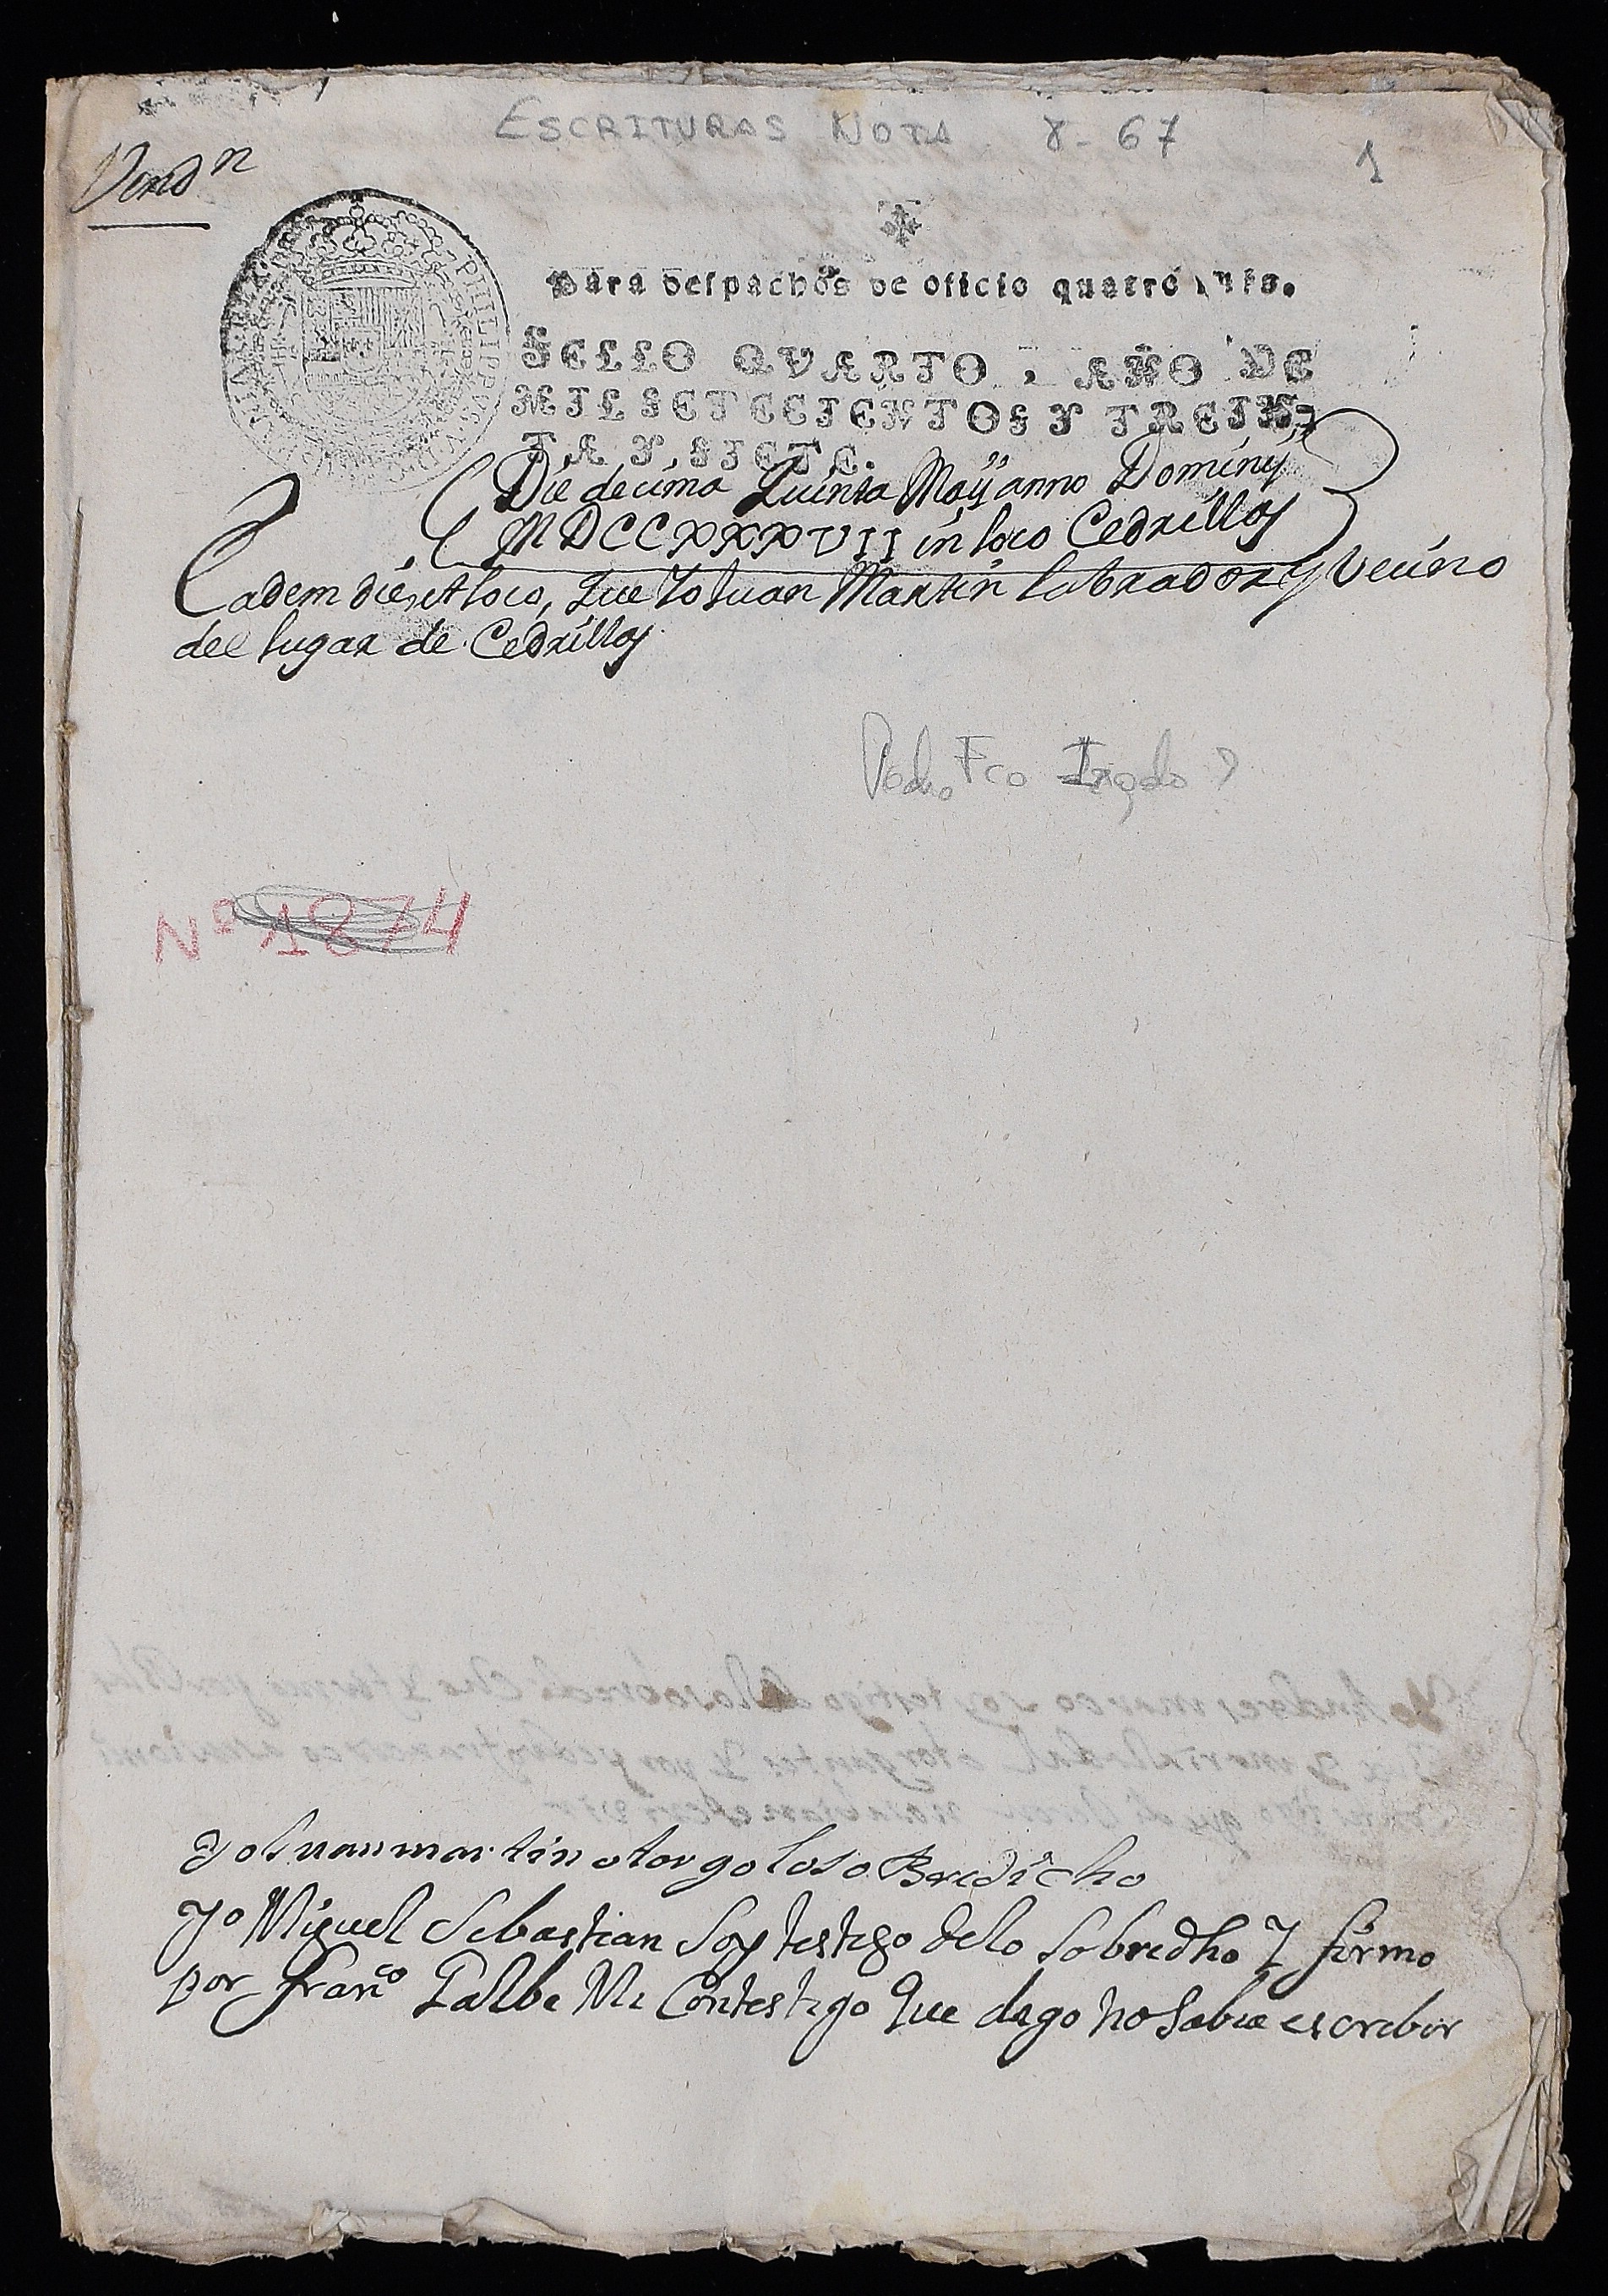 ESCRITURAS NOTA 8-67
1
Vendⁿ
PHILIPPUS V
Para despachos de oficio quatro mrs.
SELLO QVARTO, AÑO DE
MIL SETECIENTOS Y TREIN-
TA Y SIETE.
Die decima Quinta Maÿ anno Dominÿ
MDCCXXXVII in loco Cedrillas
Eadem die, et loco, Que Yo Juan Martin labrador y Vecino
del lugar de Cedrillas
Pedro Fco ?
Nº 1874
Yo Juan martin otorgo lo sobredicho
Yo Miguel Sebastian Soy testigo delo sobredho Y firmo
por Franco Galbe Mi Contestigo Que digo no sabia escribir